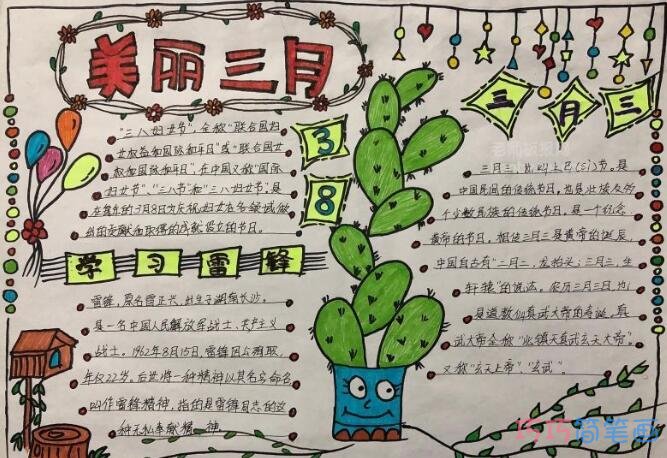 美丽三月
"三八妇女节",全称"联合国妇
女权益和国际和平日"或"联合国女
权和国际和平日",在中国又称"国际
妇女节"、"三八节"和"三八妇女节",是
在每年的3月8日为庆祝妇女在各领域做
出的贡献和取得的成就设立的节日。
3
8
学习雷锋
雷锋,原名雷正兴,出生于湖南长沙。
是一名中国人民解放军战士、共产主义
战士。1962年8月15日,雷锋因公殉职,
年仅22岁。后迹将一种精神以其名字命名,
叫作雷锋精神,指的是雷锋同志的这
种无私奉献精神
三月三
三月三,也叫上巳(sì)节。是
中国民间的传统节日,也是壮族及
个少数民族的传统节日,是一个纪念
黄帝的节日。相传三月三是黄帝的诞辰,
中国自古有"二月二,龙抬头;三月三,生
轩辕"的说法。农历三月三日,也
是道教仙真武大帝的寿诞。真
武大帝全称"北镇天真武玄天大帝"。
又称"玄天上帝"、"玄武"。
巧巧简笔画